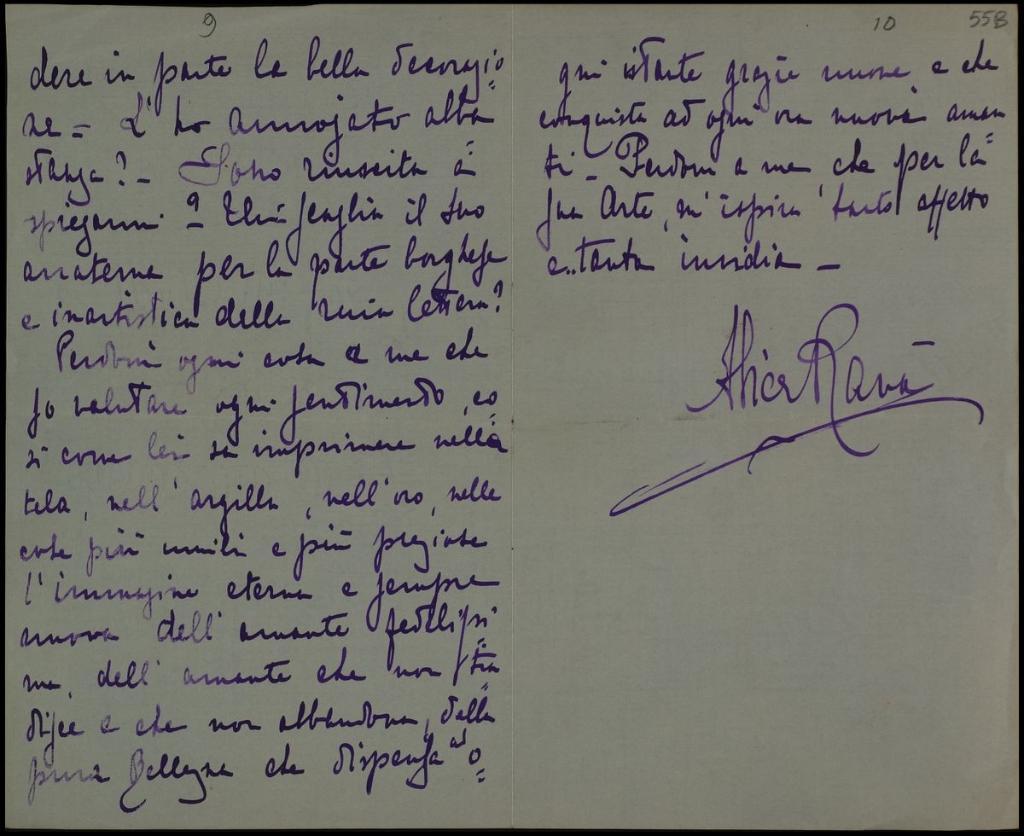 9
dere in parte la bella decorazio=
ne = L'ho annojato abba
stanza? - Sono riuscita a
spiegarmi? = Ella scaglia il suo
anatema per la parte borghese
e inartistica della mia lettera?
Perdoni ogni cosa a me che
so valutare ogni sentimento, co=
sì come lei sa imprimere nella
tela, nell'argilla, nell'oro, nelle
cose più umili e più preziose
l'immagine eterna e sempre
nuova dell'amante fedelissi=
ma, dell'amante che non tra=
disce e che non abbandona, della
pura Bellezza che dispensa ad o=
10
55B
gni istante grazie nuove, e che
conquista ad ogni ora nuovi aman=
ti - Perdoni a me che per la
sua Arte, m'ispira tanto affetto
e.. tanta invidia -
Alice Ravà